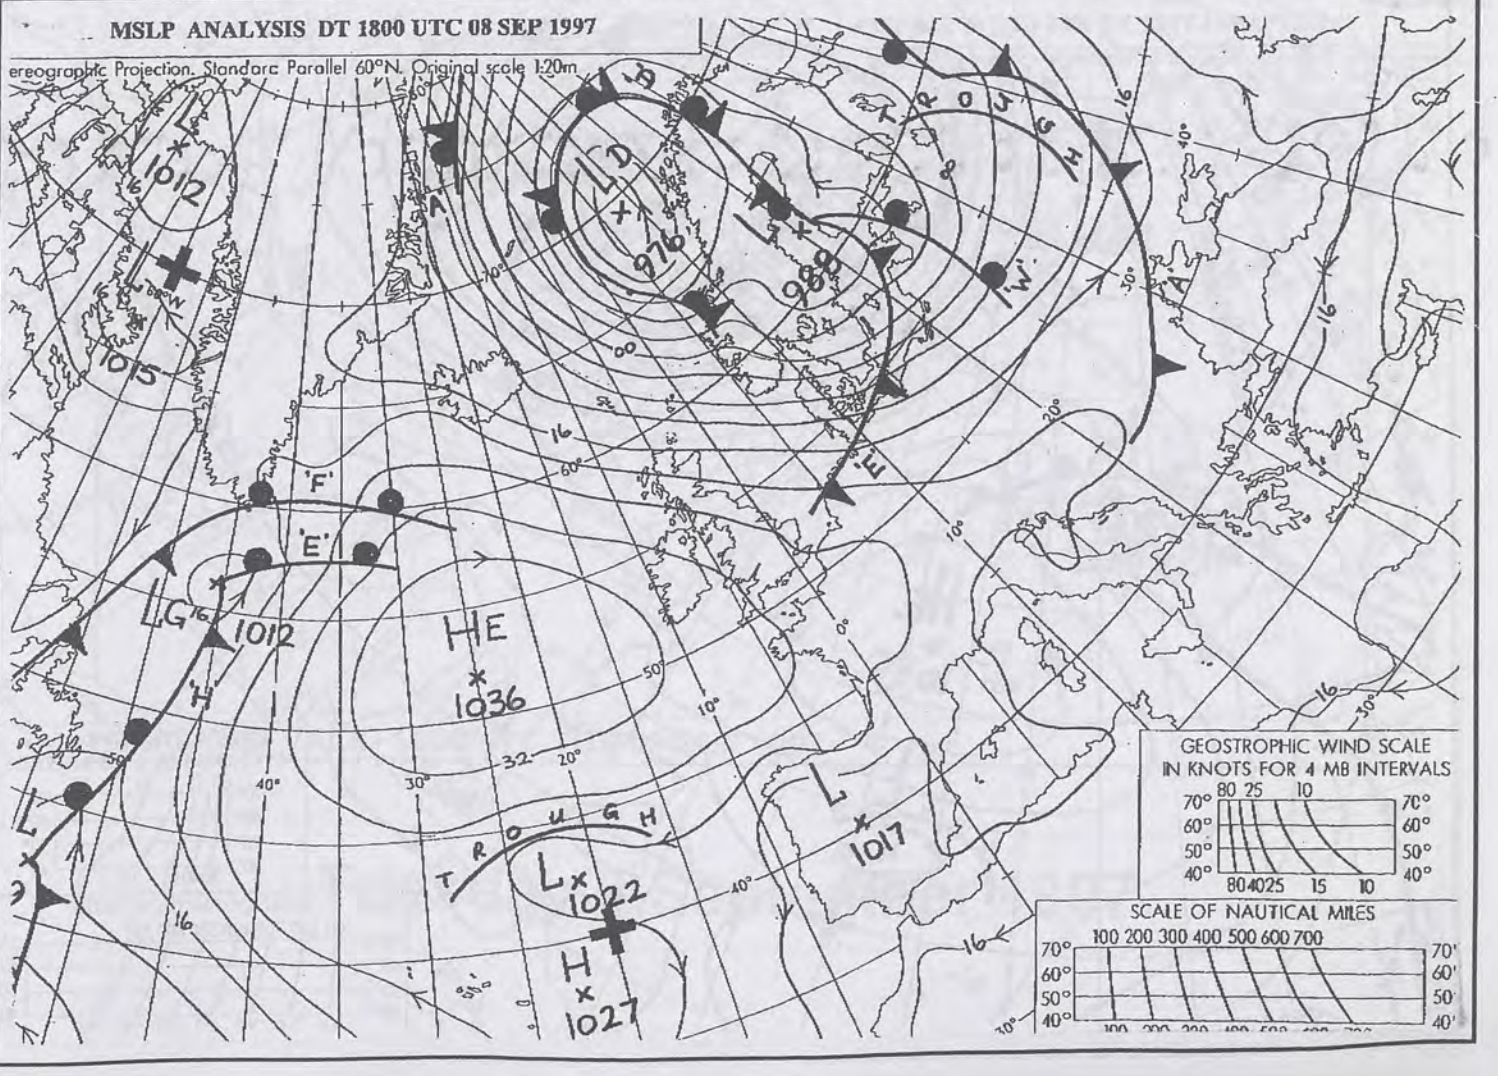 MSLP ANALYSIS DT 1800 UTC 08 SEP 1997
ereographic Projection. Standard Parallel 60°N. Original scale 1:20m
L
1012
16
60°W
1015
A
'B'
L D
976
L
988
T R O U G H
8
'W'
'A'
16
40°
30°
16
70°
00
16
60°
20°
'E'
10°
'F'
'E'
L G 16
1012
'H'
HE
1036
50°
0°
10°
32
20°
30°
40°
50
L
16
T R O U G H
L
1022
H
1027
40°
L
1017
16
30°
16
GEOSTROPHIC WIND SCALE
IN KNOTS FOR 4 MB INTERVALS
80 25 10
70° 70°
60° 60°
50° 50°
40° 40°
80 40 25 15 10
SCALE OF NAUTICAL MILES
100 200 300 400 500 600 700
70° 70'
60° 60'
50° 50'
40° 40'